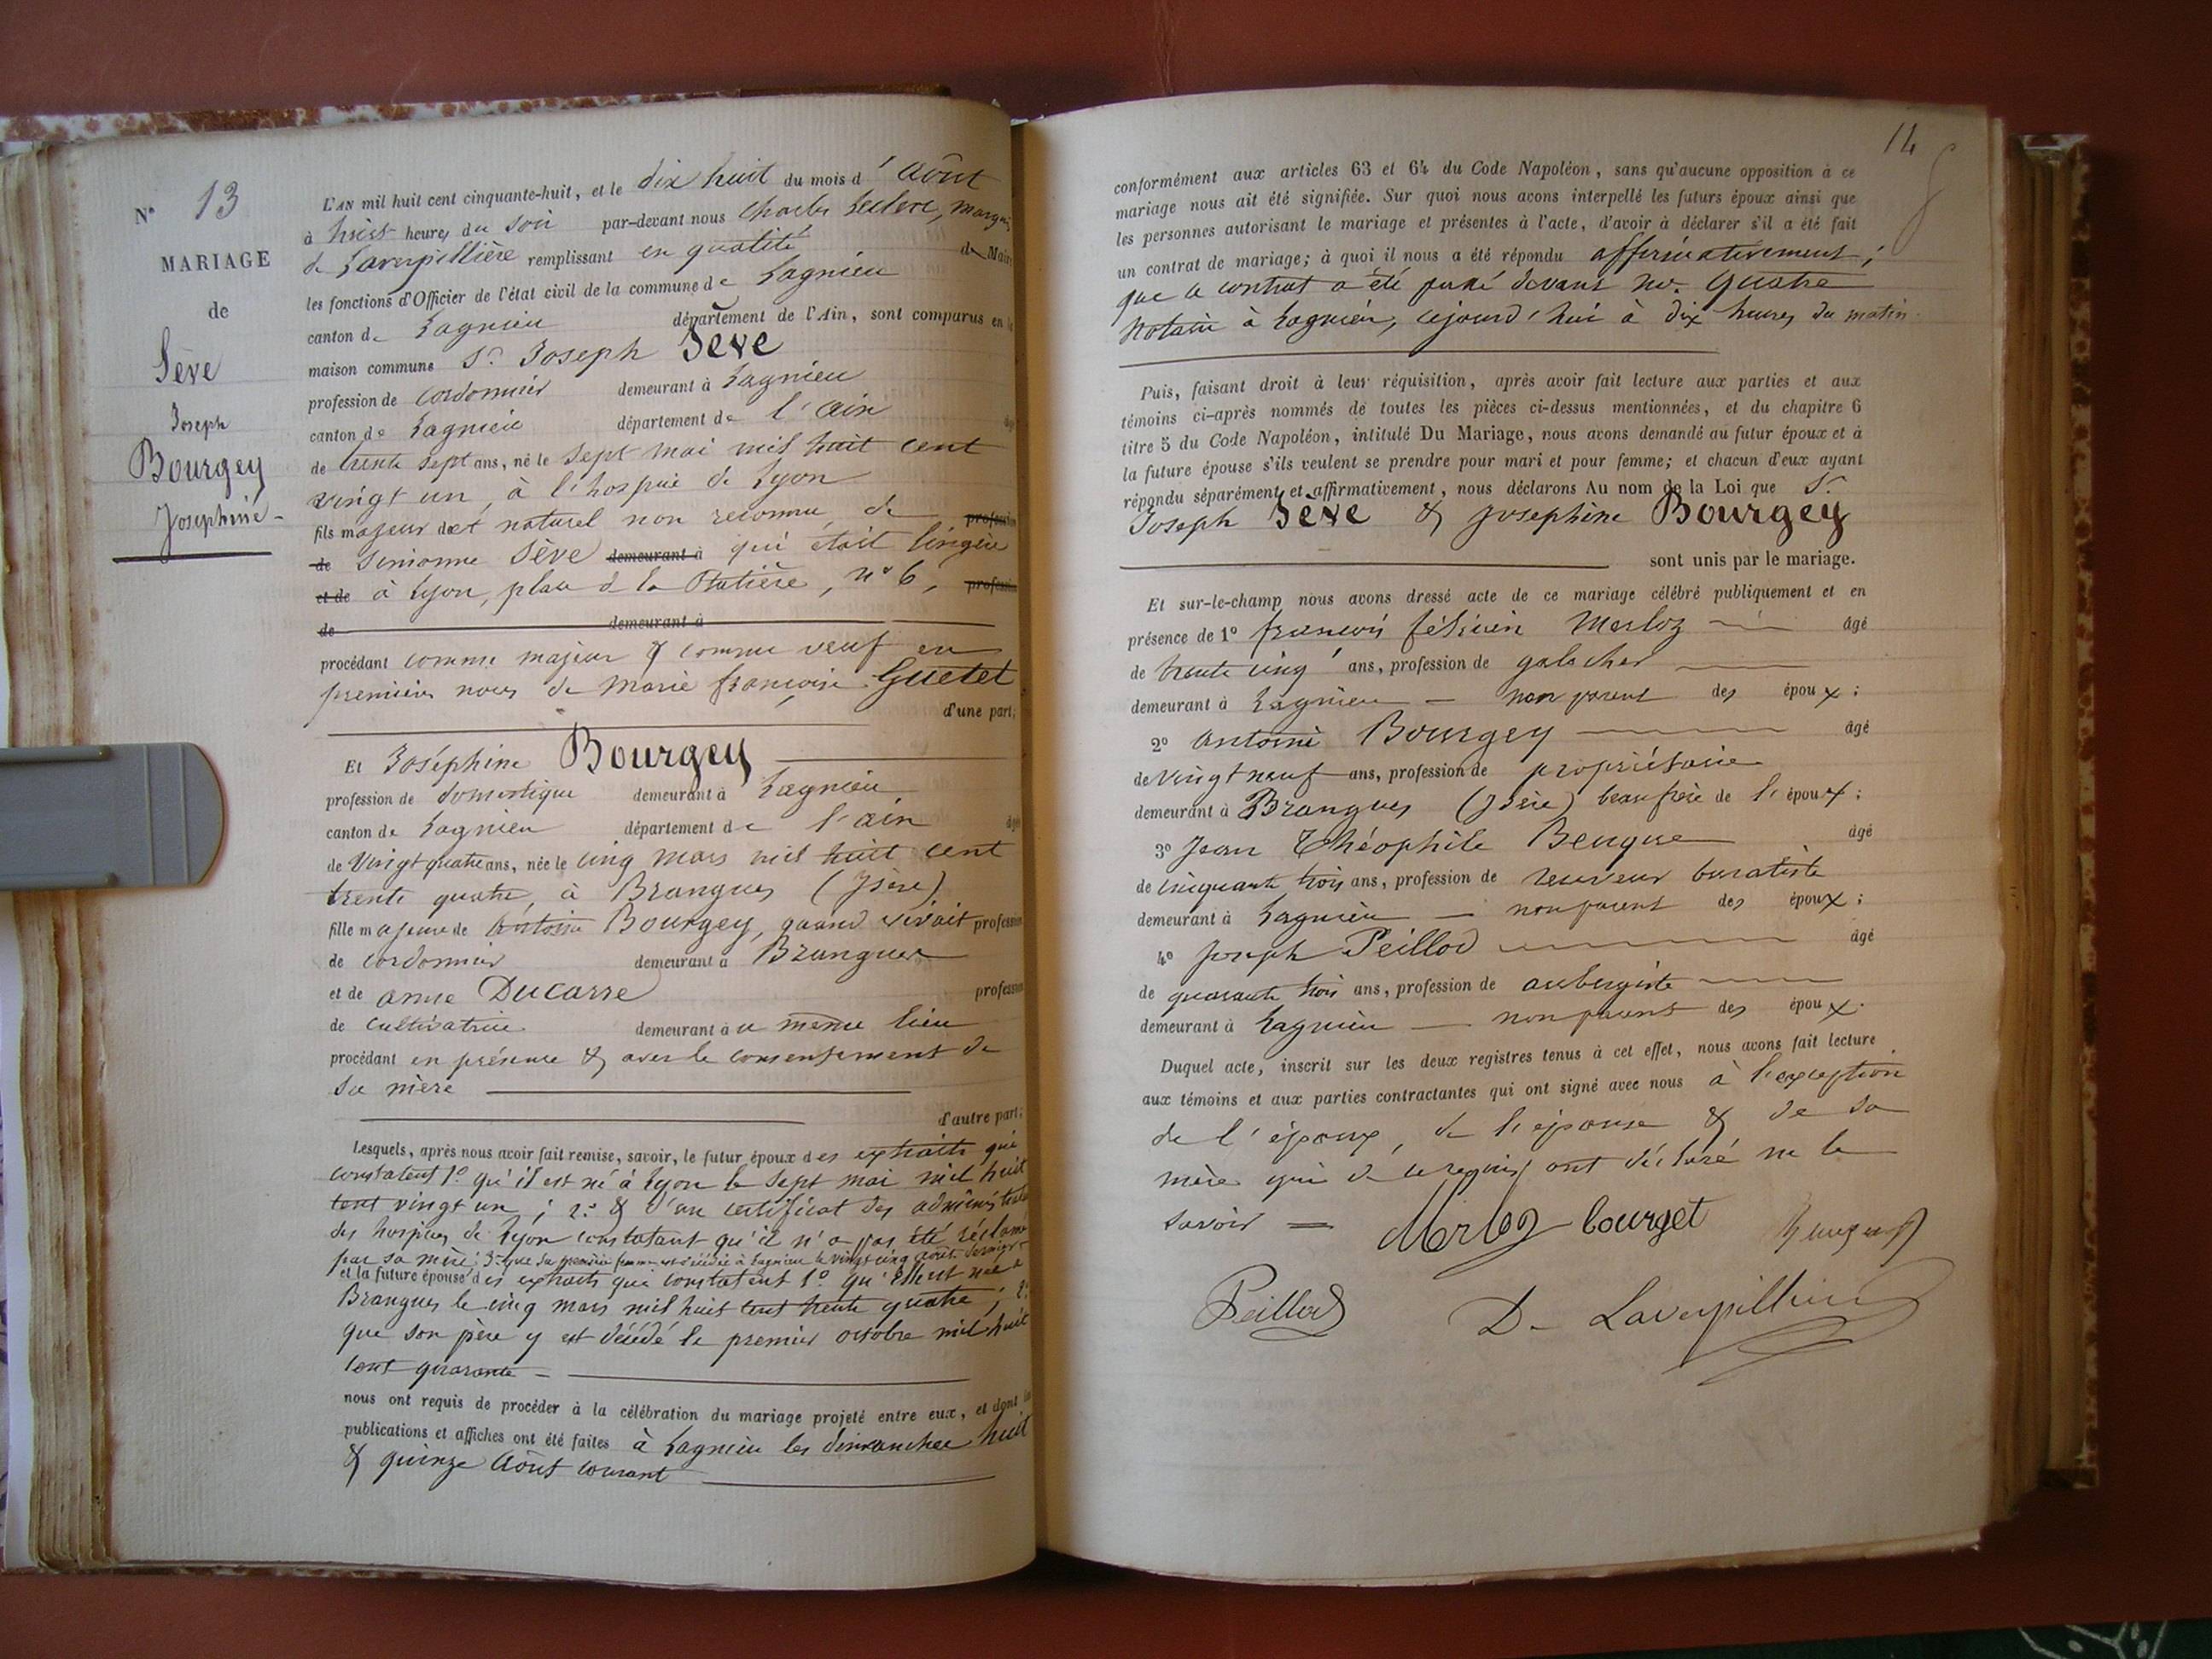 N° 13
MARIAGE
de
Sève
Joseph
Bourgey
Joséphine
L'AN mil huit cent cinquante-huit, et le dix huit du mois d'Août
à huit heures du soir par-devant nous Charles Leclerc, Marquis
de Laverpillière remplissant en qualité de Maire
les fonctions d'Officier de l'état civil de la commune de Lagnieu
canton de Lagnieu département de l'Ain, sont comparus en la
maison commune Sr. Joseph Sève
profession de cordonnier demeurant à Lagnieu
canton de Lagnieu département de l'Ain âgé
de trente sept ans, né le sept mai mil huit cent
vingt un, à l'hospice de Lyon
fils majeur et naturel non reconnu de profession
de Simonne Sève demeurant à qui était lingère
et de à Lyon, place de la Platière, n° 6, profession
de demeurant à
procédant comme majeur & comme veuf en
premières noces de Marie françoise Guetet
d'une part;
Et Joséphine Bourgey
profession de domestique demeurant à Lagnieu
canton de Lagnieu département de l'ain âgée
de vingt quatre ans, née le cinq mars mil huit cent
trente quatre, à Brangues (Isère)
fille majeure de Antoine Bourgey, quand vivait profession
de cordonnier demeurant à Brangues
et de anne Ducarre profession
de cultivatrice demeurant à u même lieu
procédant en présence & avec le consentement de
sa mère
d'autre part;
Lesquels, après nous avoir fait remise, savoir, le futur époux des extraits qui
constatent 1° qu'il est né à Lyon le sept mai mil huit
cent vingt un; 2° & d'un certificat des
des hospices de Lyon constatant qu'il n'a pas été réclamé
par sa mère; 3° que sa première femme est décédée à Lagnieu le vingt cinq août dernier
et la future épouse des extraits qui constatent 1° qu'Elle est née à
Brangues le cinq mars mil huit cent trente quatre; 2°
que son père y est décédé le premier octobre mil huit
cent quarante
nous ont requis de procéder à la célébration du mariage projeté entre eux, et dont les
publications et affiches ont été faites à Lagnieu les dimanches huit
& quinze Août courant
14
conformément aux articles 63 et 64 du Code Napoléon, sans qu'aucune opposition à ce
mariage nous ait été signifiée. Sur quoi nous avons interpellé les futurs époux ainsi que
les personnes autorisant le mariage et présentes à l'acte, d'avoir à déclarer s'il a été fait
un contrat de mariage; à quoi il nous a été répondu affirmativement;
que ce contrat a été passé devant Me. Quatre
Notaire à Lagnieu, cejourd'hui à dix heures du matin
Puis, faisant droit à leur réquisition, après avoir fait lecture aux parties et aux
témoins ci-après nommés de toutes les pièces ci-dessus mentionnées, et du chapitre 6
titre 5 du Code Napoléon, intitulé Du Mariage, nous avons demandé au futur époux et à
la future épouse s'ils veulent se prendre pour mari et pour femme; et chacun d'eux ayant
répondu séparément et affirmativement, nous déclarons Au nom de la Loi que Sr.
Joseph Sève & Joséphine Bourgey
sont unis par le mariage.
Et sur-le-champ nous avons dressé acte de ce mariage célébré publiquement et en
présence de 1° françois félicien Merloz âgé
de trente cinq ans, profession de galocher
demeurant à Lagnieu non parent des époux;
2° Antoine Bourgey âgé
de vingt neuf ans, profession de propriétaire
demeurant à Brangues (Isère) beau frère de l'époux;
3° Jean Théophile Beugue âgé
de cinquante trois ans, profession de receveur buraliste
demeurant à Lagnieu non parent des époux;
4° Joseph Peillod âgé
de quarante trois ans, profession de aubergiste
demeurant à Lagnieu non parent des époux.
Duquel acte, inscrit sur les deux registres tenus à cet effet, nous avons fait lecture
aux témoins et aux parties contractantes qui ont signé avec nous à l'exception
de l'époux, de l'épouse & de sa
mère qui de ce requis ont déclaré ne le
savoir
Merloz bourget
Peillod De Laverpillière